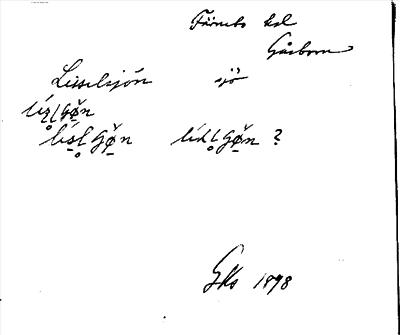 Färnebo hd
Gåsborn
Lisselsjön sjö
lizl gø̠n
lísl gø̠n lidl gø̠n ?
GKs 1898